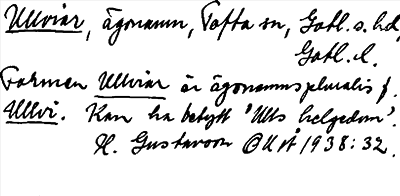 Ullviar, ägonamn, Tofta sn, Gotl. s. hd,
Gotl. l.
Formen Ullviar är ägonamnspluralis f.
Ullvi. Kan ha betytt 'Ulls helgedom'.
H. Gustavson OUÅ 1938: 32.